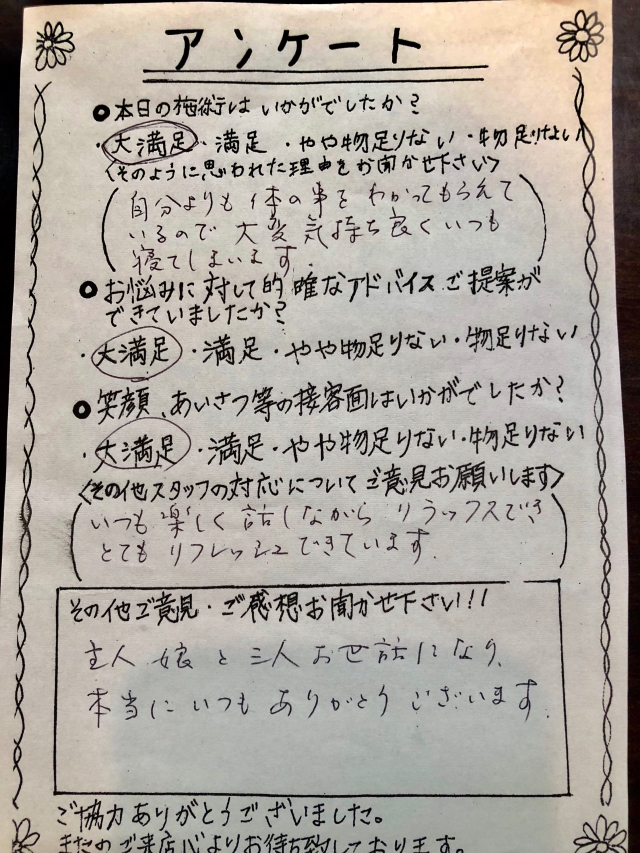 アンケート
●本日の施術はいかがでしたか?
・大満足・満足・やや物足りない・物足りない
<そのように思われた理由をお聞かせ下さい>
自分よりも体の事をわかってもらえて
いるので大変気持ち良くいつも
寝てしまいます.
●お悩みに対して的確なアドバイスご提案が
できていましたか?
・大満足・満足・やや物足りない・物足りない
●笑顔、あいさつ等の接客面はいかがでしたか?
・大満足・満足・やや物足りない・物足りない
<その他スタッフの対応についてご意見お願いします>
いつも楽しく話しながらリラックスでき
とてもリフレッシュできています.
その他ご意見・ご感想お聞かせ下さい!!!
主人 娘と三人お世話になり、
本当にいつもありがとうございます.
ご協力ありがとうございました。
またのご来店心よりお待ち致しております。